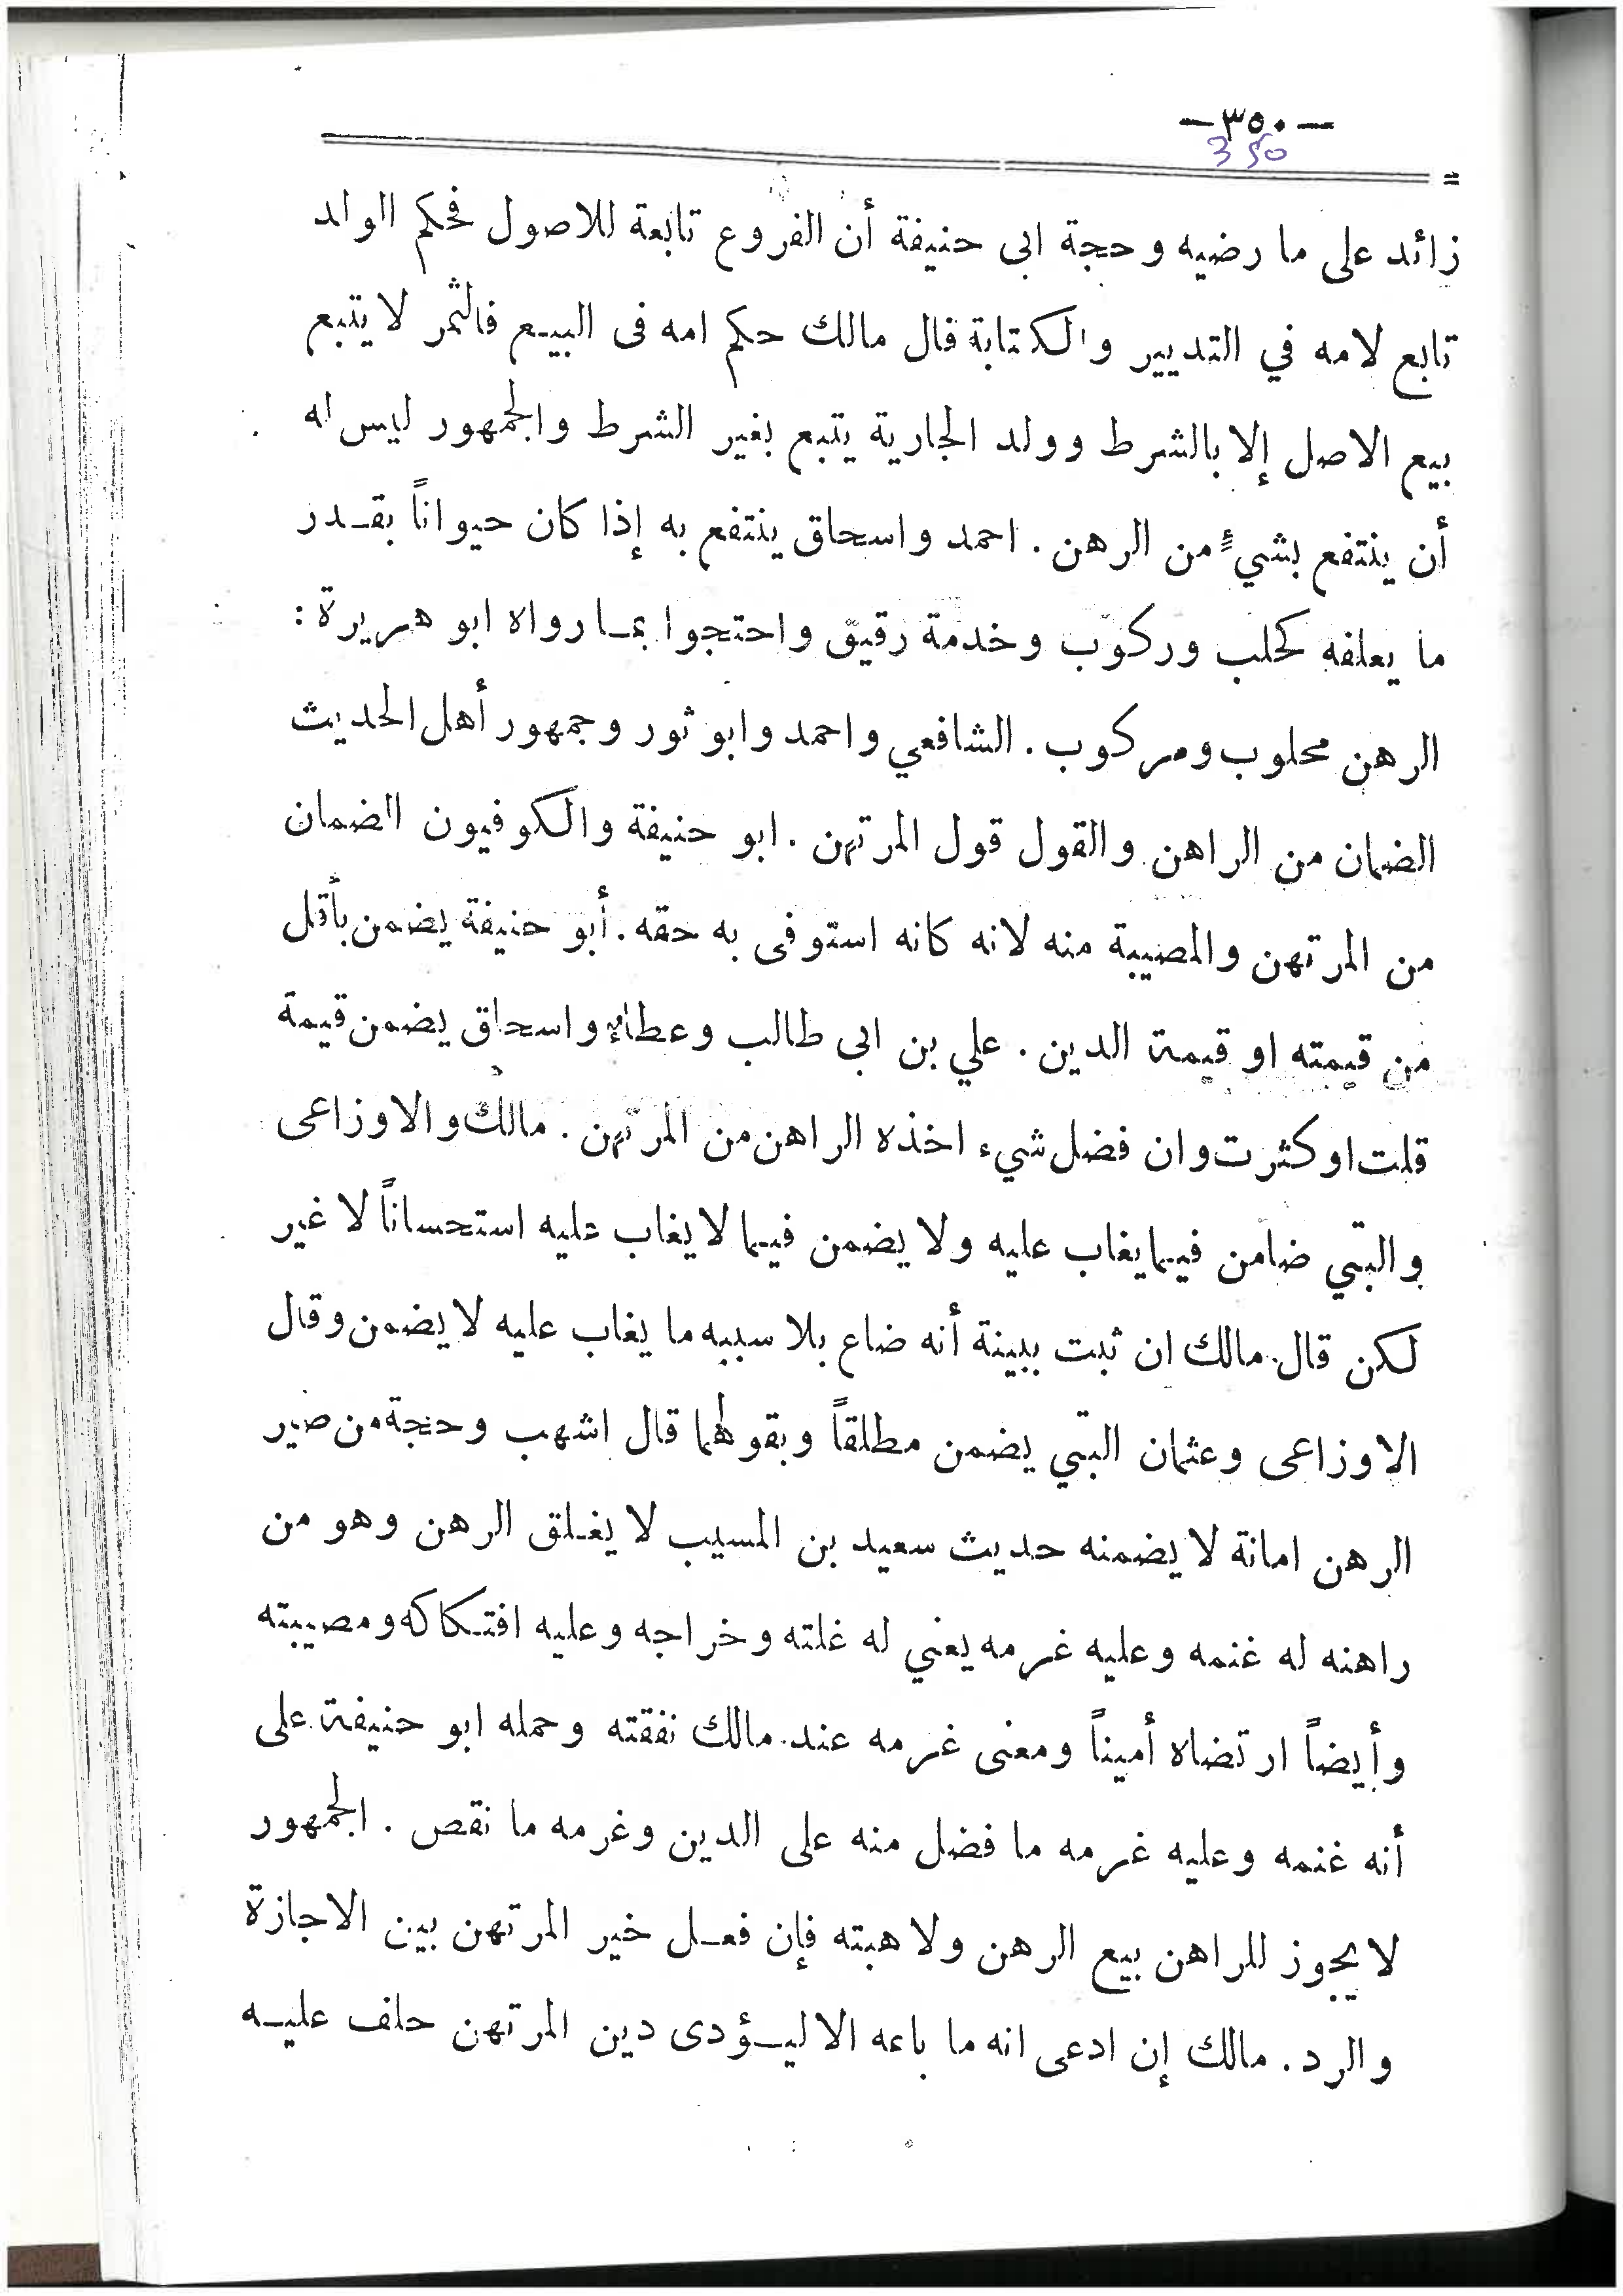 — ٣٥٠ —
350
زائد على ما رضيه وحجة ابى حنيفة أن الفروع تابعة للاصول فحكم الولد
تابع لامه في التدبير والكتابة قال مالك حكم امه فى البيع فالثمر لا يتبع
بيع الاصل إلا بالشرط وولد الجارية يتبع بغير الشرط والجمهور ليس له
أن ينتفع بشيءٍ من الرهن . احمد واسحاق ينتفع به إذا كان حيواناً بقدر
ما يعلفه كحلب وركوب وخدمة رقيق واحتجوا بما رواه ابو هريرة :
الرهن محلوب ومركوب . الشافعي واحمد وابو ثور وجمهور أهل الحديث
الضمان من الراهن والقول قول المرتهن . ابو حنيفة والكوفيون الضمان
من المرتهن والمصيبة منه لانه كانه استوفى به حقه . أبو حنيفة يضمن بأقل
من قيمته او قيمة الدين . علي بن ابى طالب وعطاء واسحاق يضمن قيمة
قلت او كثرت وان فضل شيء اخذه الراهن من المرتهن . مالك والاوزاعى
والبتي ضامن فيما يغاب عليه ولا يضمن فيما لا يغاب عليه استحساناً لا غير
لكن قال مالك ان ثبت ببينة أنه ضاع بلا سببه ما يغاب عليه لا يضمن وقال
الاوزاعى وعثمان البتي يضمن مطلقاً وبقولهما قال اشهب وحجة من صير
الرهن امانة لا يضمنه حديث سعيد بن المسيب لا يغلق الرهن وهو من
راهنه له غنمه وعليه غرمه يعني له غلته وخراجه وعليه افتكاكه ومصيبته
وأيضاً ارتضاه أميناً ومعنى غرمه عند مالك نفقته وحمله ابو حنيفة على
أنه غنمه وعليه غرمه ما فضل منه على الدين وغرمه ما نقص . الجمهور
لا يجوز للراهن بيع الرهن ولا هبته فإن فعل خير المرتهن بين الاجازة
والرد . مالك إن ادعى انه ما باعه الا ليؤدى دين المرتهن حلف عليه